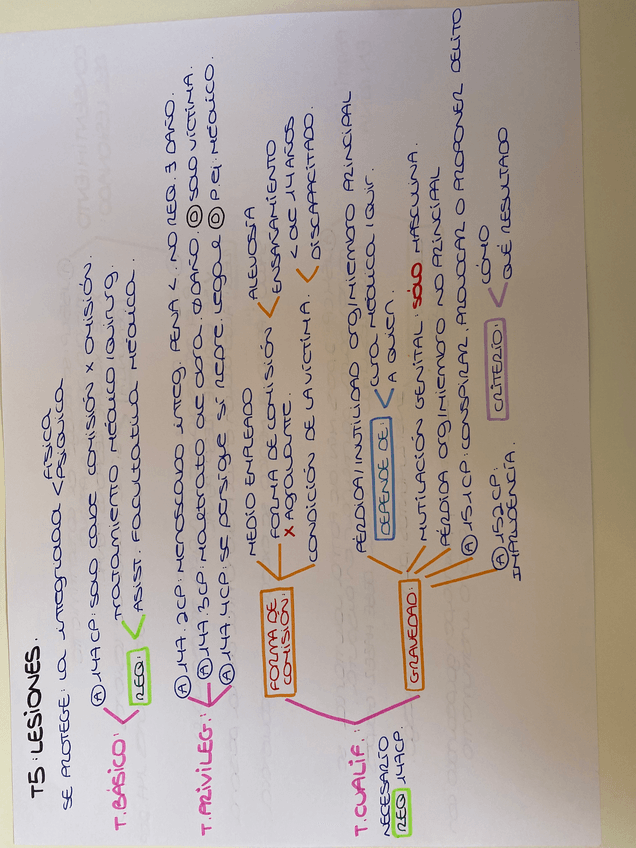 T5: LESIONES.
SE PROTEGE: LA INTEGRIDAD < FÍSICA
PSÍQUICA
T. BÁSICO:
(A) 147 CP: SOLO CABE COMISIÓN X OMISIÓN.
REQ: TRATAMIENTO MÉDICO/QUIRURG.
ASIST. FACULTATIVA MÉDICA.
T. PRIVILEG.:
(A) 147.2 CP: MENOSCABO INTEG. PENA <. NO REQ. ∃ DAÑO.
(A) 147.3 CP: MALTRATO DE OBRA. Ø DAÑO. (D) SOLO VÍCTIMA.
(A) 147.4 CP: SE PERSIGE SÍ REPRE. LEGAL (D) P.EJ: MÉDICO.
T. CUALIF.
NECESARIO
REQ 147 CP.
FORMA DE
COMISIÓN:
MEDIO EMPLEADO
FORMA DE COMISIÓN < ALEVOSÍA
ENSAÑAMIENTO
X AGRAVANTE.
CONDICIÓN DE LA VÍCTIMA. < < DE 14 AÑOS
DISCAPACITADO.
GRAVEDAD:
PÉRDIDA/INUTILIDAD ORG/MIEMBRO PRINCIPAL
DEPENDE DE: < CURA MÉDICA/QUIR.
A QUIEN.
MUTILACIÓN GENITAL: SÓLO MASCULINA.
PÉRDIDA ORG/MIEMBRO NO PRINCIPAL
(A) 151 CP: CONSPIRAR, PROVOCAR O PROPONER DELITO
(A) 152 CP:
IMPRUDENCIA.
CRITERIO: < CÓMO
QUÉ RESULTADO